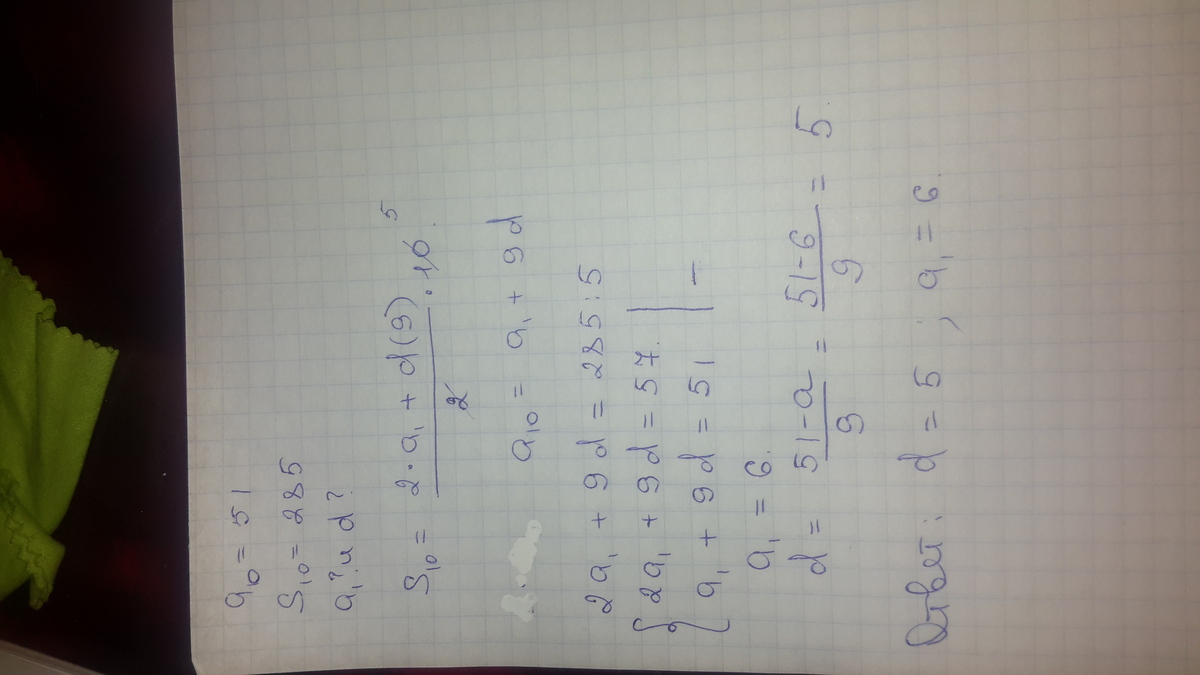 a₁₀ = 51
S₁₀ = 285
a₁? и d?
S₁₀ = (2·a₁ + d(9))/2 · 10 5.
a₁₀ = a₁ + 9d
2a₁ + 9d = 285:5
{ 2a₁ + 9d = 57. |
a₁ + 9d = 51 | −
a₁ = 6.
d = (51-a)/9 = (51-6)/9 = 5.
Ответ: d = 5 ; a₁ = 6.